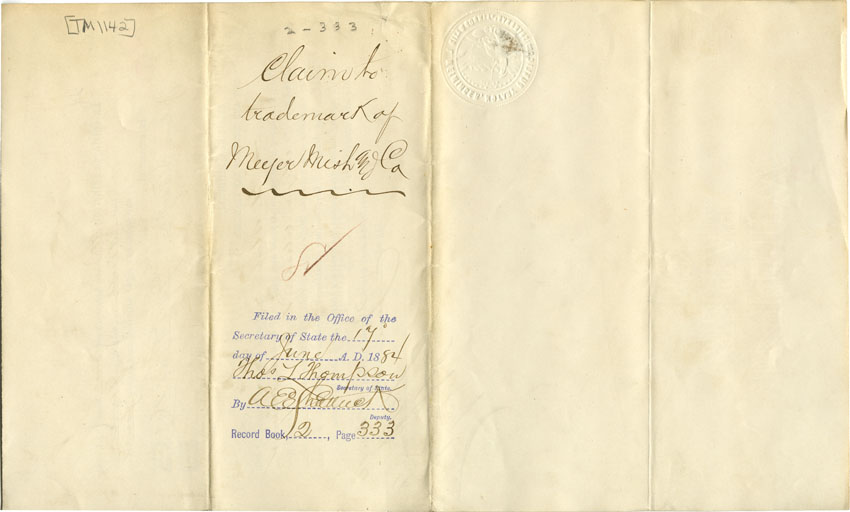 [TM 1142]
2-333
Claim to
trademark of
Meyer Mish & Co
Filed in the Office of the
Secretary of State the 17
day of June A. D. 1884
Thos L Thompson
Secretary of State.
By
Deputy.
Record Book, 2, Page 333